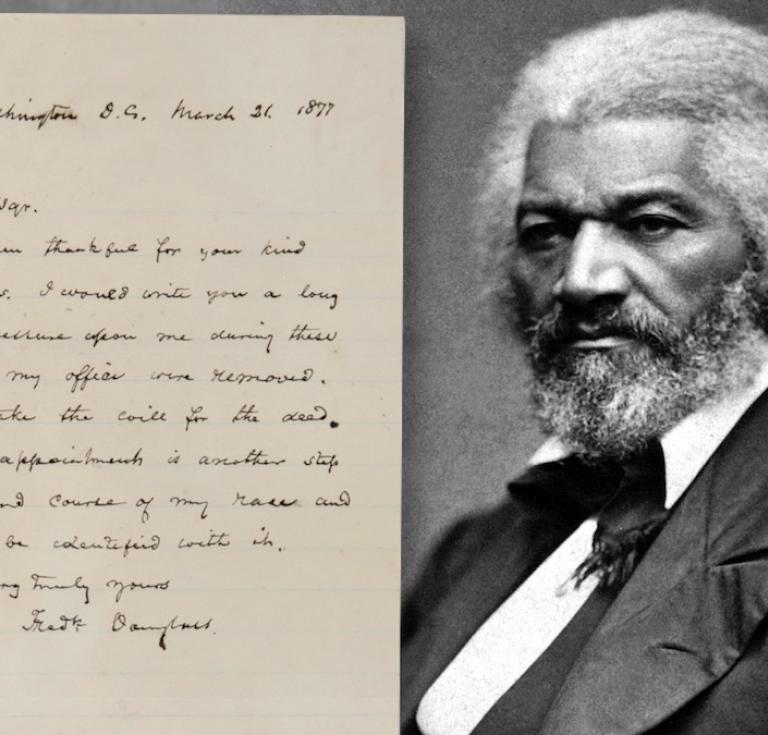 hington D.C. March 21. 1877
sqr.
m thankful for your kind
s. I would write you a long
ressure upon me during these
my office were removed.
ake the will for the deed.
appointment is another step
nd course of my race and
be identified with it.
ry Truly yours
Fredk Douglass.